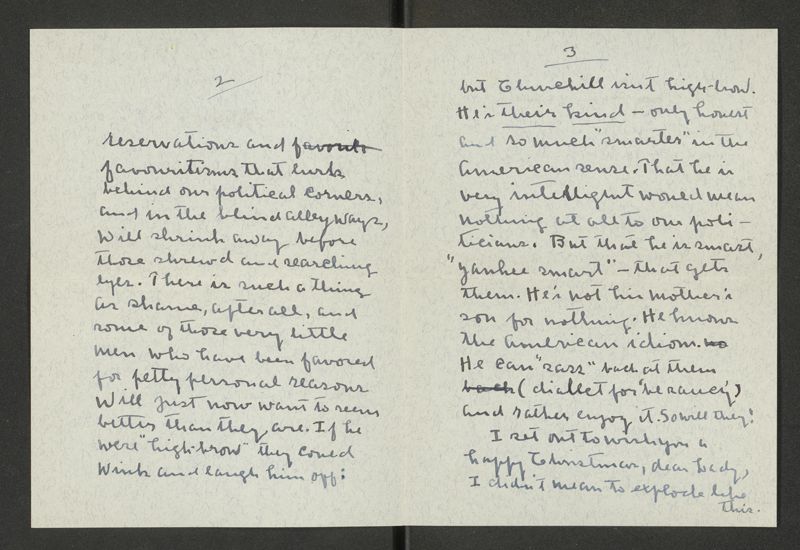 2
reservations and ~~favorits~~
favouritisms that lurks
behind our political corners,
and in the blind alleyways,
will shrink away before
those shrewd and searching
eyes. There is such a thing
as shame, after all, and
some of those very little
men who have been favored
for petty personal reasons
will just now want to seem
better than they are. If he
were "high-brow" they could
wink and laugh him off:
3
but Churchill isn't high-brow.
He's their kind – only honest
and so much "smarter" in the
American sense. That he is
very intelligent would mean
nothing at all to our poli-
ticians. But that he is smart,
"yankee smart" – that gets
them. He's not his mother's
son for nothing. He knows
the American idiom. ~~no~~
He can "sass" back at them
~~back~~ (dialect for 'be saucy')
and rather enjoy it. So will they!
I set out to wish you a
happy Christmas, dear Lady,
I didn't mean to explode like
this.